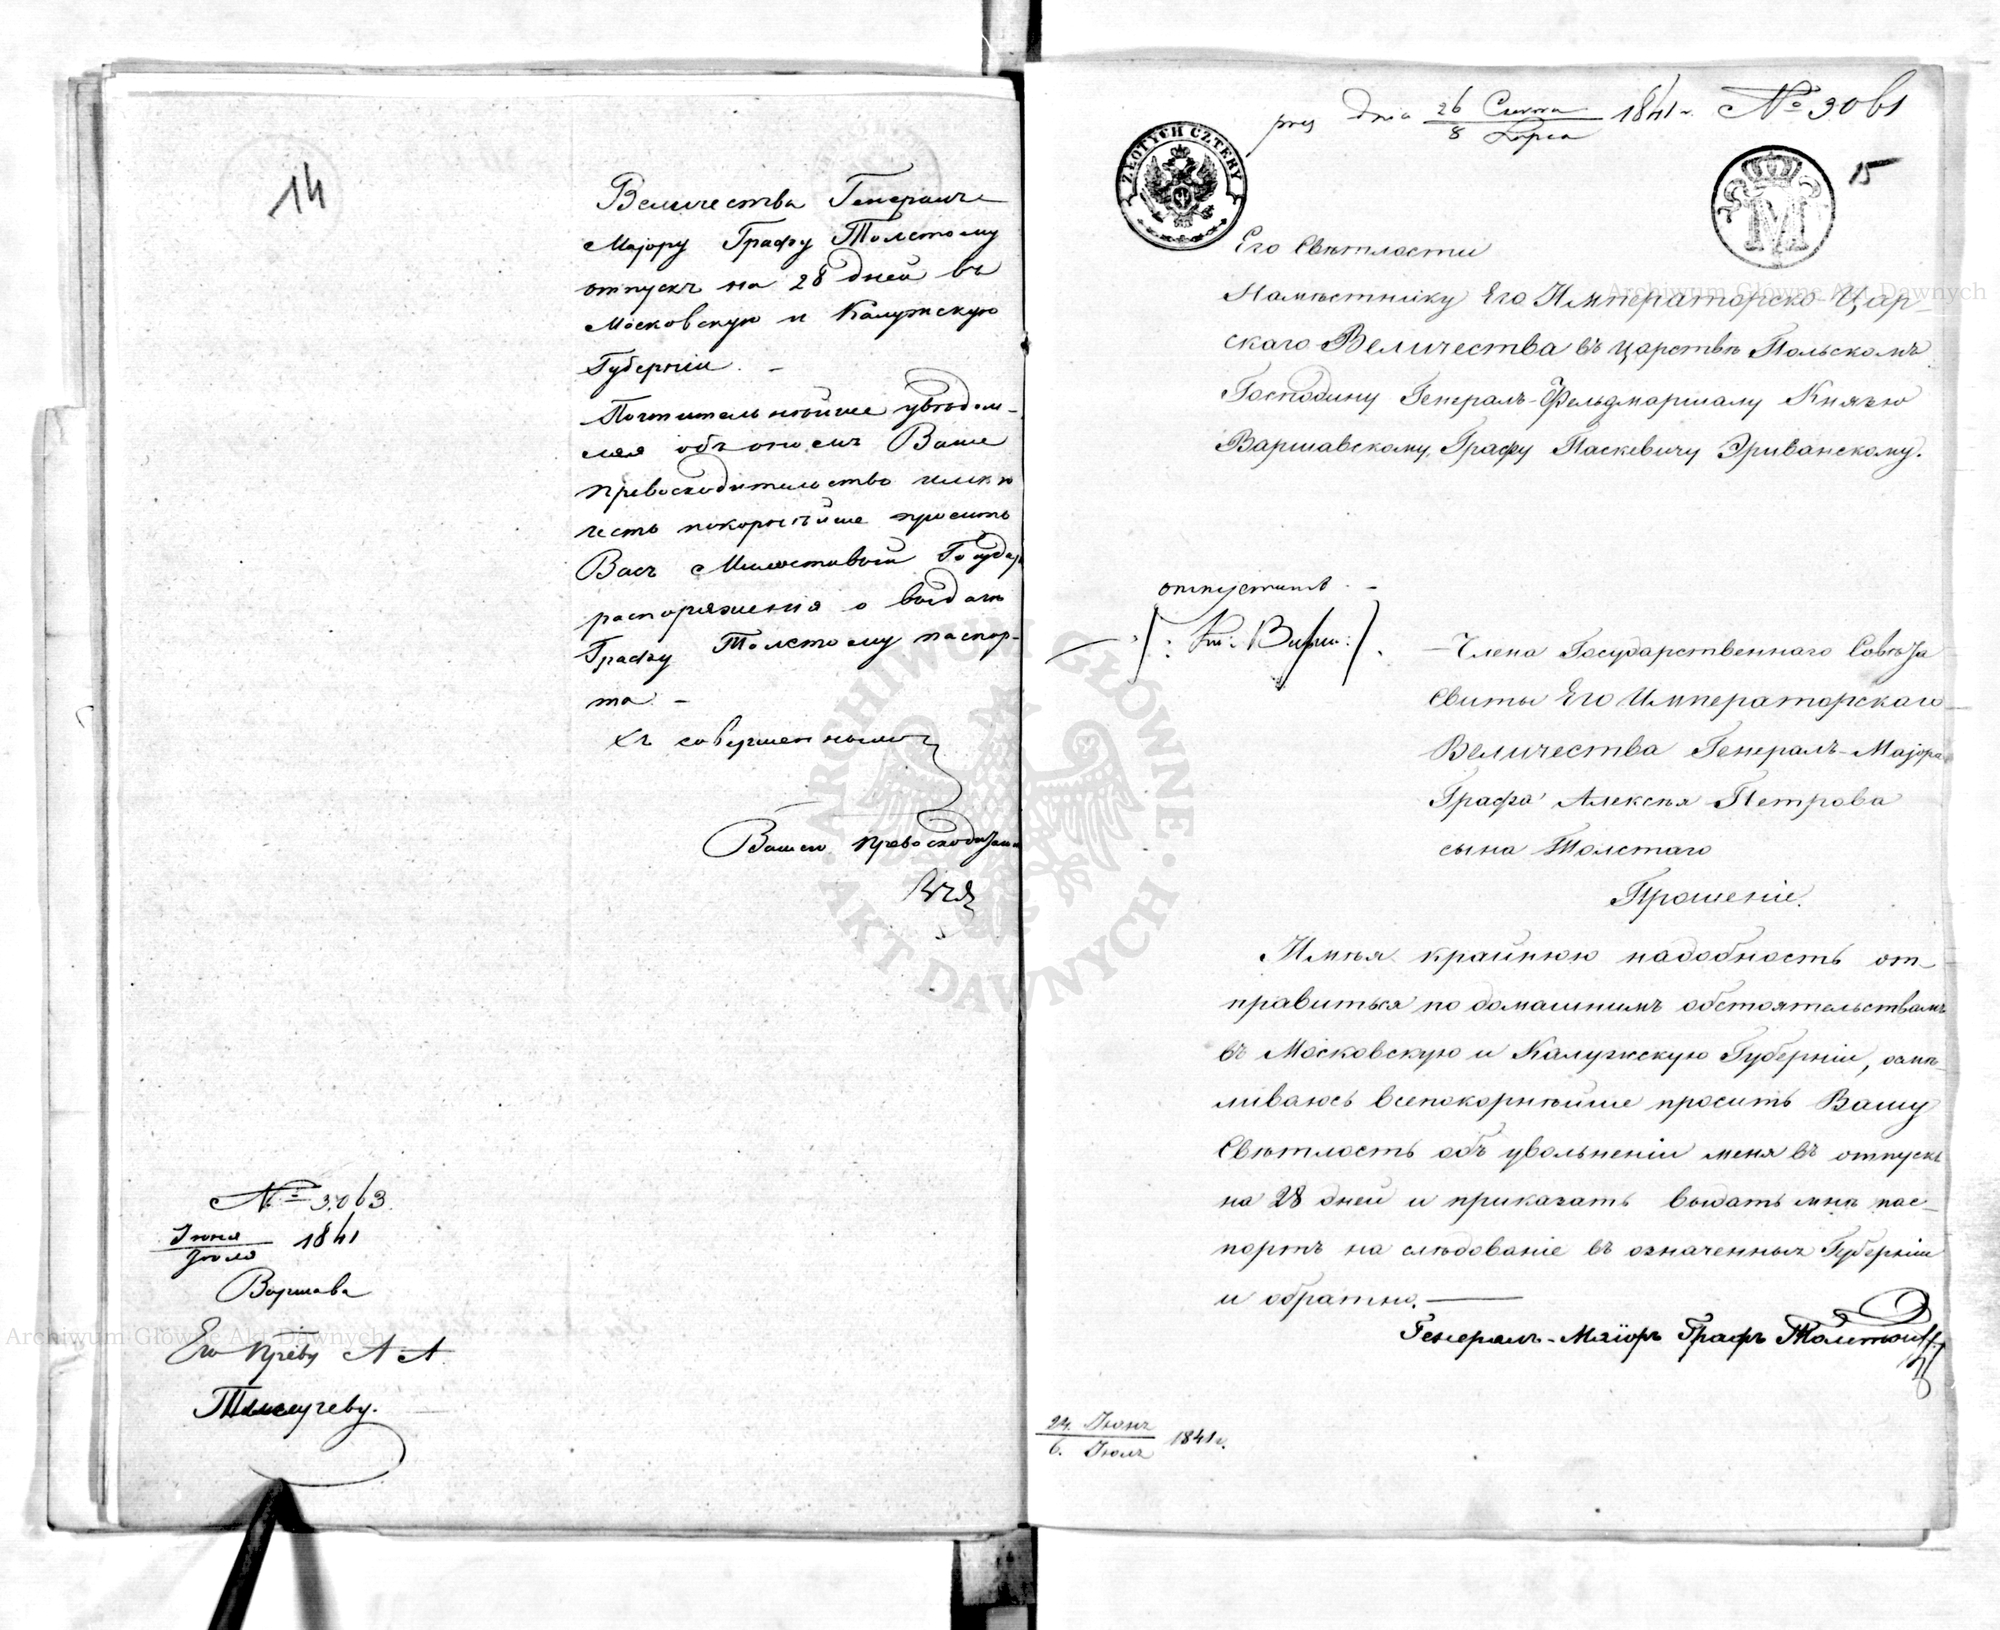 14
Величества Генералъ
Маjору Графу Толстому
отпускъ на 28 дней въ
Московскую и Калужскую
Губернiи. —
Почтительнѣйше увѣдом-
ляя объ ономъ Ваше
Превосходительство имѣю
честь покорнѣйше просить
Васъ Милостивый Государь
распоряженiя о выдачѣ
Графу Толстому паспор-
та. —
Съ совершеннымъ
Вашего Превосходительства
№ 3063.
Iюня
Iюля
1841
Варшава
Его Прев. А А
Тымчугеву.
дня 26 Czerwca
8 Lipca
1841 r. № 3061
ZŁOTYCH CZTERY
M
15
Его Свѣтлости
Намѣстнику Его Императорско Цар-
скаго Величества въ Царствѣ Польскомъ
Господину Генералъ-Фельдмаршалу Князю
Варшавскому, Графу Паскевичу Эриванскому.
отпустить. —
Кн: Варш:
Члена Государственнаго Совѣта
Свиты Его Императорскаго
Величества Генералъ-Маjора
Графа Алексѣя Петрова
сына Толстаго
Прошенiе.
Имѣя крайнюю надобность от-
правиться по домашнимъ обстоятельствамъ
въ Московскую и Калужскую Губернiи, осмѣ-
ливаюсь всепокорнѣйше просить Вашу
Свѣтлость объ увольненiи меня въ отпускъ
на 28 дней и приказать выдать мнѣ пас-
портъ на слѣдованiе въ означенныя Губернiи
и обратно. —
Генералъ-Маiоръ Графъ Толстой
24. Iюнъ
6. Iюлъ
1841 г.
ARCHIWUM GŁÓWNE AKT DAWNYCH
Archiwum Główne Akt Dawnych
Archiwum Główne Akt Dawnych